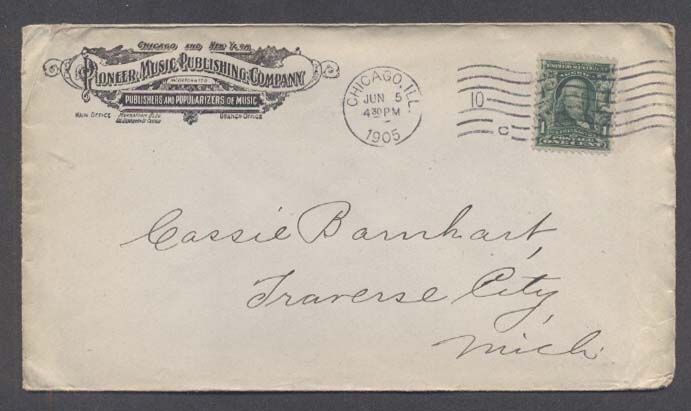 CHICAGO AND NEW YORK
PIONEER MUSIC PUBLISHING COMPANY
INCORPORATED
PUBLISHERS AND POPULARIZERS OF MUSIC
MAIN OFFICE
BRANCH OFFICE
CHICAGO, ILL.
JUN 5
4 30 PM
1905
10
1
1
ONE CENT
Cassie Barnhart,
Traverse City,
Mich.